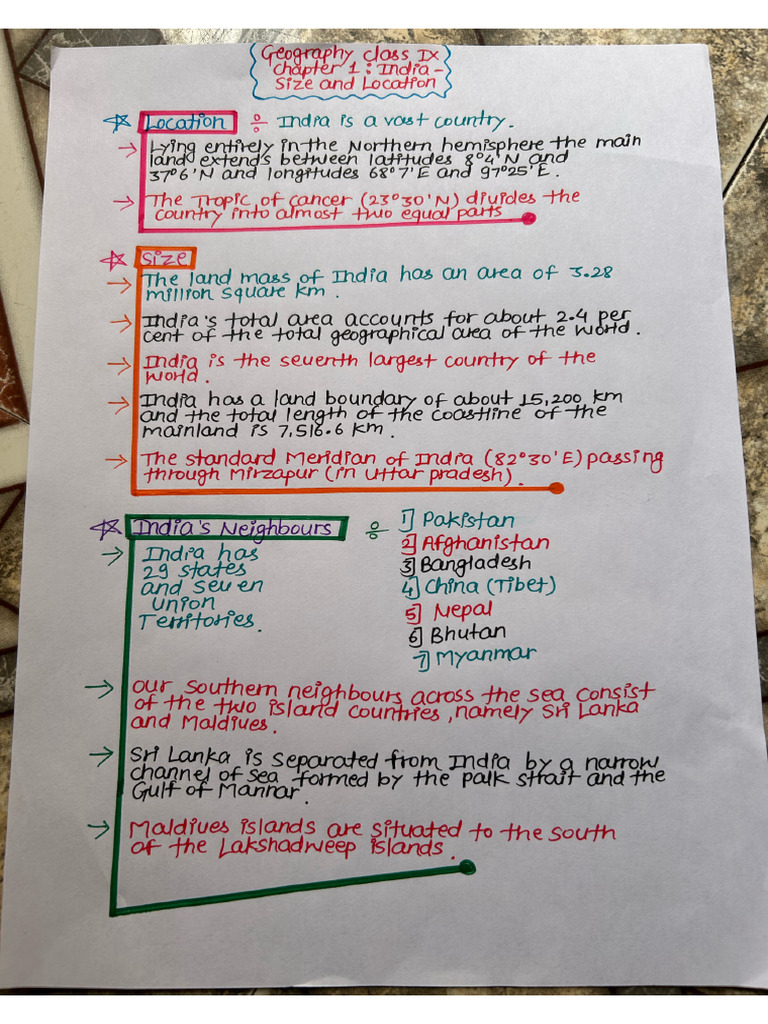 Geography class IX
Chapter 1 : India -
Size and Location
Location ÷ India is a vast country.
→ Lying entirely in the Northern hemisphere the main
land extends between latitudes 8°4'N and
37°6'N and longitudes 68°7'E and 97°25'E.
→ The Tropic of cancer (23°30'N) divides the
country into almost two equal parts
Size
→ The land mass of India has an area of 3.28
million square km.
→ India's total area accounts for about 2.4 per
cent of the total geographical area of the world.
→ India is the seventh largest country of the
world.
→ India has a land boundary of about 15,200 km
and the total length of the coastline of the
mainland is 7,516.6 km.
→ The standard Meridian of India (82°30'E) passing
through Mirzapur (in Uttar pradesh).
India's Neighbours ÷
→ India has
29 states
and seven
union
Territories.
1] Pakistan
2] Afghanistan
3] Bangladesh
4] China (Tibet)
5] Nepal
6] Bhutan
7] Myanmar
→ our southern neighbours across the sea consist
of the two island countries, namely Sri Lanka
and Maldives.
→ Sri Lanka is separated from India by a narrow
channel of sea formed by the palk strait and the
Gulf of Mannar.
→ Maldives islands are situated to the south
of the Lakshadweep islands.